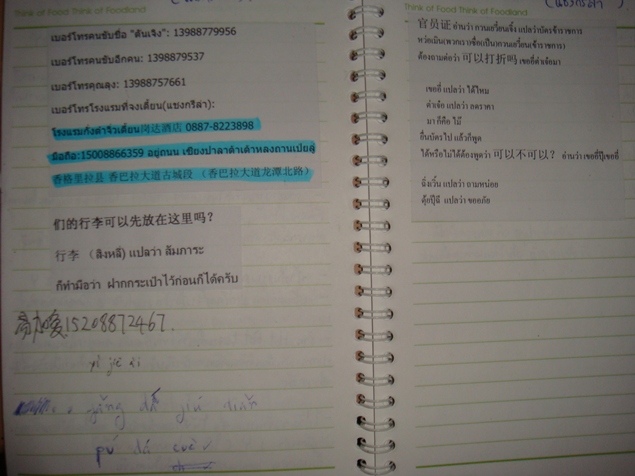 Think of Food Think of Foodland
เบอร์โทรคนขับชื่อ "ตันเจิง": 13988779956
เบอร์โทรคนขับอีกคน: 13988879537
เบอร์โทรคุณลุง: 13988757661
เบอร์โทรโรงแรมที่จงเตี้ยน(แชงกรีล่า):
โรงแรมกังต๋าจิ่วเตี้ยน岗达酒店 0887-8223898
มือถือ:15008866359 อยู่ถนน เซียงปาลาต้าเต้าหลงถานเปยลู่
香格里拉县 香巴拉大道古城段 (香巴拉大道龙潭北路)
们的行李可以先放在这里吗?
行李 (ลิงหลี) แปลว่า สัมภาระ
ก็ทำมือว่า ฝากกระเป๋าไว้ก่อนก็ได้ครับ
15208872467.
yi jie
pú dá cuè
Think of Food Think of Foodland
官员证 อ่านว่า กวนเยวี๋ยนเจิ้ง แปลว่าบัตรข้าราชการ
หว่อเมินเพวกเรา
ต้องถามต่อว่า 可以打折吗 เขออี่ต่าเจ๋อมา
เขออี่ แปลว่า ได้ไหม
ต่าเจ๋อ แปลว่า ลดราคา
มา ก็คือ ไม๊
ยื่นบัตรไป แล้วก็พูด
ได้หรือไม่ได้ต้องพูดว่า 可以不可以? อ่านว่า เขออี่ปู้เขออี่
ฉิ่งเวิ้น แปลว่า ถามหน่อย
ตุ้ยปู้ฉี แปลว่า ขออภัย